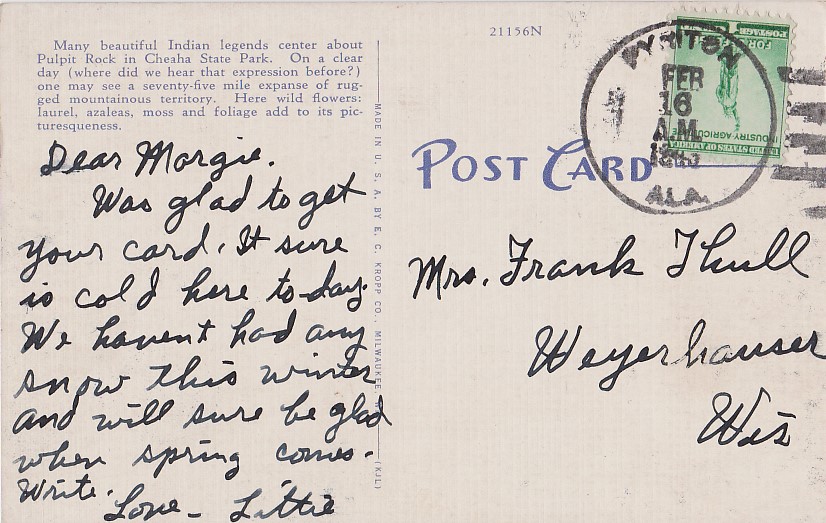 Many beautiful Indian legends center about
Pulpit Rock in Cheaha State Park. On a clear
day (where did we hear that expression before?)
one may see a seventy-five mile expanse of rug-
ged mountainous territory. Here wild flowers:
laurel, azaleas, moss and foliage add to its pic-
turesqueness.
Dear Margie.
Was glad to get
your card. It sure
is cold here to-day.
We havent had any
snow this winter
and will sure be glad
when spring comes.
Write.
Love - Littie
MADE IN U. S. A. BY E. C. KROPP CO., MILWAUKEE
(KJL)
21156N
POST CARD
FEB
16
A.M.
ALA.
POSTAGE
INDUSTRY AGRICULTURE
UNITED STATES OF AMERICA
Mrs. Frank Thull
Weyerhauser
Wis